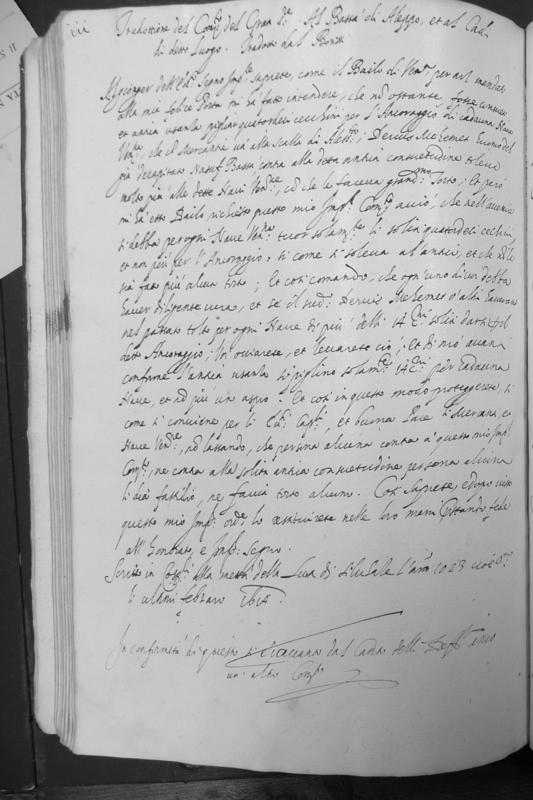 iii
Traduttione del Com.to del Gran S.re Al Bassà di Aleppo, et al Cadì
di detto luogo. Tradotto dal
All'gionger dell'Ecc.so Segno Imp.le saprete, come il Bailo di Ven.a per arz mandato
alla mia felice Porta mi hà fatto intendere, che nō ostante, fosse consueto
et antica usanza pigliar quatordeci cecchini per l'Ancoraggio di cadauna Nave
Ven.na, che di Mercantie và alla Scalla di Aless.ta; Dervis Mehemet huomo del
già Nasuf Bassà contra alla detta antica consuetudine toleva
molto più alle dette Navi Ven.ne, cō che le faceva grand.mo torto; Et però
mi hà esso Bailo richiesto questo mio Imp.l Com.to acciò, che nell'avenire
si debba per ogni Nave Ven.na tuor solam.te li soliti quatordeci cecchini,
et non più per l'Ancoraggio, si come si soleva al'antico, et che nō le
sia fato più alcun torto; Et così comando, che ogn'uno di voi debba
haver diligente cura, et se il sud.o Dervis Mehemet, ò altri havessero
nel passato tolto per ogni Nave di più delli 14 C.ni soliti darsi p il
detto Ancoraggio; Voi oviarete, et levarete ciò; et di mò avanti
conforme l'antica usanza si piglino solam.te 14 C.ni per cadauna
Nave, et nō più un aspro. Et così in questo modo proteggerete, si
come si conviene per li Ecc.si Cap.li, et buona Pace
Nave Ven.ne, nō lassando, che persona alcuna contra à questo mio Imp.l
Com.to, ne contra alla solita antica consuetudine persona alcuna
li dia fastidio, ne faccia torto alcuno. Così saprete, et dopo visto
questo mio Imp.l ord.e lo restituirete nelle loro mani prestando fede
all'honorato, e Imp.l Segno.
Scritto in Cos.li alla metà della Luna di l'anno 1023 cioè
li ultimi febraro 161.
In conformità di questo si cavava dal Cadì
un'altro Com.to